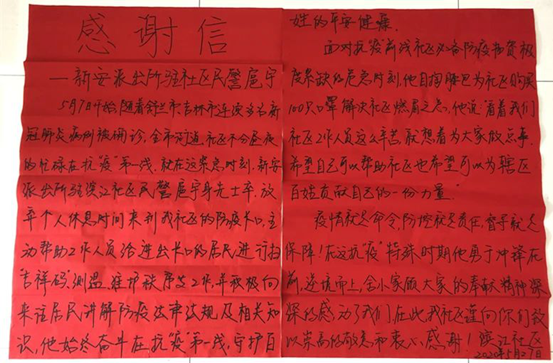 感谢信
——新安派出所驻社区民警 宇
5月7日 随着舒兰市、吉林市连续多名新
冠肺炎病例被确诊，全市街道、社区不分昼夜
的忙碌在抗疫第一线，就在这紧急时刻，新安
派出所驻滨江社区民警 宇身先士卒，放
弃个人休息时间来到我社区的防疫卡口，主
动帮助工作人员给进出卡口的居民进行扫
吉祥码、测温、维护秩序等工作，并积极向
来往居民讲解防疫法律法规及相关知
识，他始终奋斗在抗疫第一线，守护百
姓的平安健康。
面对抗疫前线社区必备防疫物资极
度紧缺的危急时刻，他自掏腰包为社区购买
100只口罩解决社区燃眉之急，他说“看着我们
社区工作人员这么辛苦，就想着为大家做点事，
希望自己可以帮助社区也希望可以为辖区
百姓贡献自己的一份力量”
疫情就是命令，防控就是责任，督导就是
保障！在这“抗疫”特殊时期他勇于冲锋在
前，逆境而上，舍小家做大家的奉献精神深
深的感动了我们，在此我社区谨向你们致
以崇高的敬意和衷心感谢！滨江社区
2020年5月27日